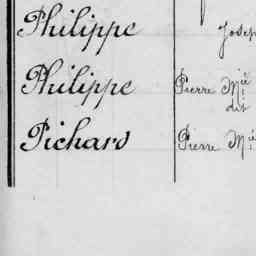 Philippe Josep
Philippe Pierre Mie
dit
Pichard Pierre Mie